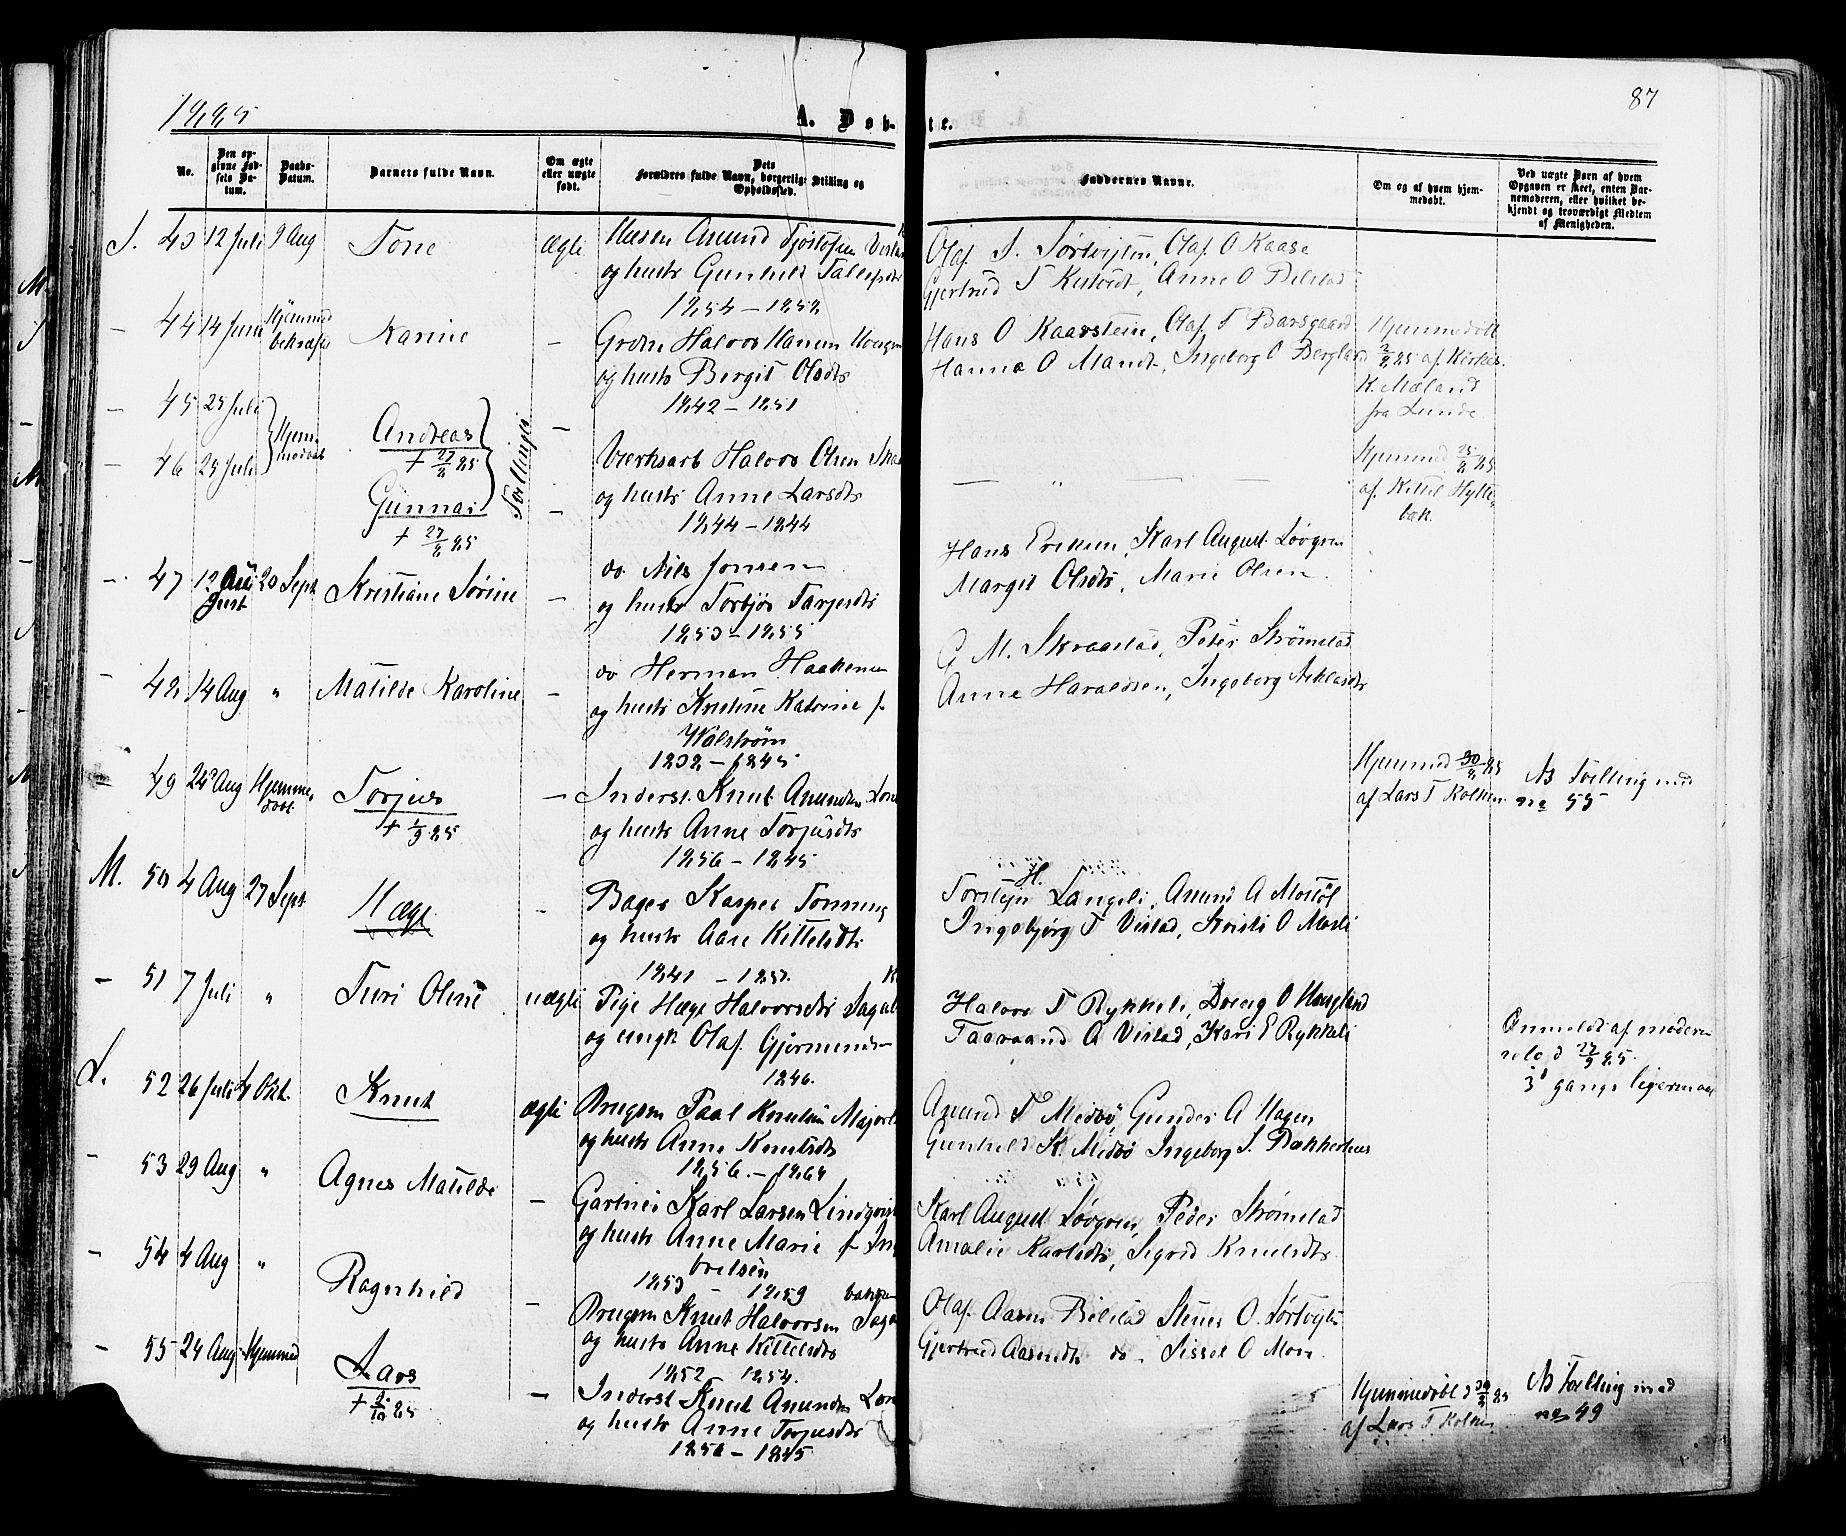 1885
A. Døbte.
87
No.
Den opgivne Fødsels Datum.
Daabs-Datum.
Barnets fulde Navn.
Om ægte eller uægte født.
Dets Forældres fulde Navn, borgerlige Stilling og Opholdssted.
Faddernes Navne.
Om og af hvem hjemmedøbt.
Ved uægte Børn af hvem Opgaven er skeet, enten Barnemoderen, eller hvilket bekjendt og troværdigt Medlem af Menigheden.
S. 43 12 Juli 9 Aug Tone ægte Husm Anund Tjøstofsen
og hustr Gunhild
1854 – 1852
Olaf S. Sørtvejten, Olaf O Kaase
Gjertrud T Kistvedt, Anne O Bilstad
– 44 14 Juni Hjemmed bekræft Karine – Grdbr Halvor Hansen
og hustr Bergit Olsdtr
1842 – 1851
Hans O Kaarstein, Olaf T Barsgaard
Hanna O Mandt, Ingeborg O Bergland
Hjemmedøbt
af Kirkes.
K. Mæland
fra Lunde
– 45 25 Juli Hjemmedøbt Andreas –
+ 27/8 85
– 46 25 Juli Gunnar –
+ 27/8 85
Tvillinger
Værksarb Halvor Olsen
og hustr Anne Larsdtr
1844 – 1844
Hjemmed 25/8 85
af Kittil Hyttebæk.
– 47 12 August 20 Sept Kristiane Sørine – do Nils Jonsen
og hustr Torbjør Tarjesdtr
1853 – 1855
Hans Eriksen, Karl August Løvgren
Margit Olsdtr, Marie Olsen
– 48 14 Aug " Matilde Karoline – do Herman Haakensen
og hustr Kristine Katrine f.
Walstrøm
1852 – 1845
G M. Skraastad, Peter Strømstad
Anne Haraldsen, Ingeborg Aslaksdtr
– 49 24 Aug Hjemmedøbt Torjus –
+ 1/9 85
Inderst Knut Anundsen
og hustr Anne Torjusdtr
1856 – 1845
Hjemmed 30/8 85
af Lars T Kolken
NB Tvilling med
no 55
M. 50 4 Aug 27 Sept Hæge – Bager Kasper Tonning
og hustr Aase Kittelsdtr
1841 – 1857.
Torstein H. Langeli, Anund A Mostøl
Ingebjørg T Vistad, Kristi O Mosli
– 51 7 Juli " Turi Oline uægte Pige Hæge Halvorsdtr
og ungk Olaf Gjermunds-
1846.
Halvor T Rykkeli, Dreng O Haugland
Taaraand A Vistad, Kari E Rykkeli
Anmeldt af moderen
selv d 27/9 85.
3d gangs leiermaal
L. 52 26 Juli 4 Okt. Knut ægte Brugsm Paal Knutsen
og hustr Anne Knutsdtr
1856. – 1864
Anund T Medbø, Gunder A Hagen
Gunhild K. Medbø Ingeborg S. Bakkerhus
– 53 29 Aug " Agnes Matilde – Gartner Karl Larsen Lindqvist
og hustr Anne Marie f. In-
brelsen
1853 – 1859
Karl August Løvgren, Peder Strømstad
Amalie Karlsdtr, Sigrid Knutsdtr
– 54 4 Aug " Ragnhild – Brugsm Knut Halvorsen
og hustr Anne Kittelsdtr
1852 1854.
Olaf Aasm Bilstad Stener O. Sørtvejten
Gjertrud Aasmdtr do. Sissel O Moen
– 55 24 Aug Hjemmed Lars –
+ 2/10 85
Inderst Knut Anundsen
og hustr Anne Torjusdtr
1856 – 1845
Hjemmedøbt d 30/8 85
af Lars T Kolken
NB Tvilling med
no 49